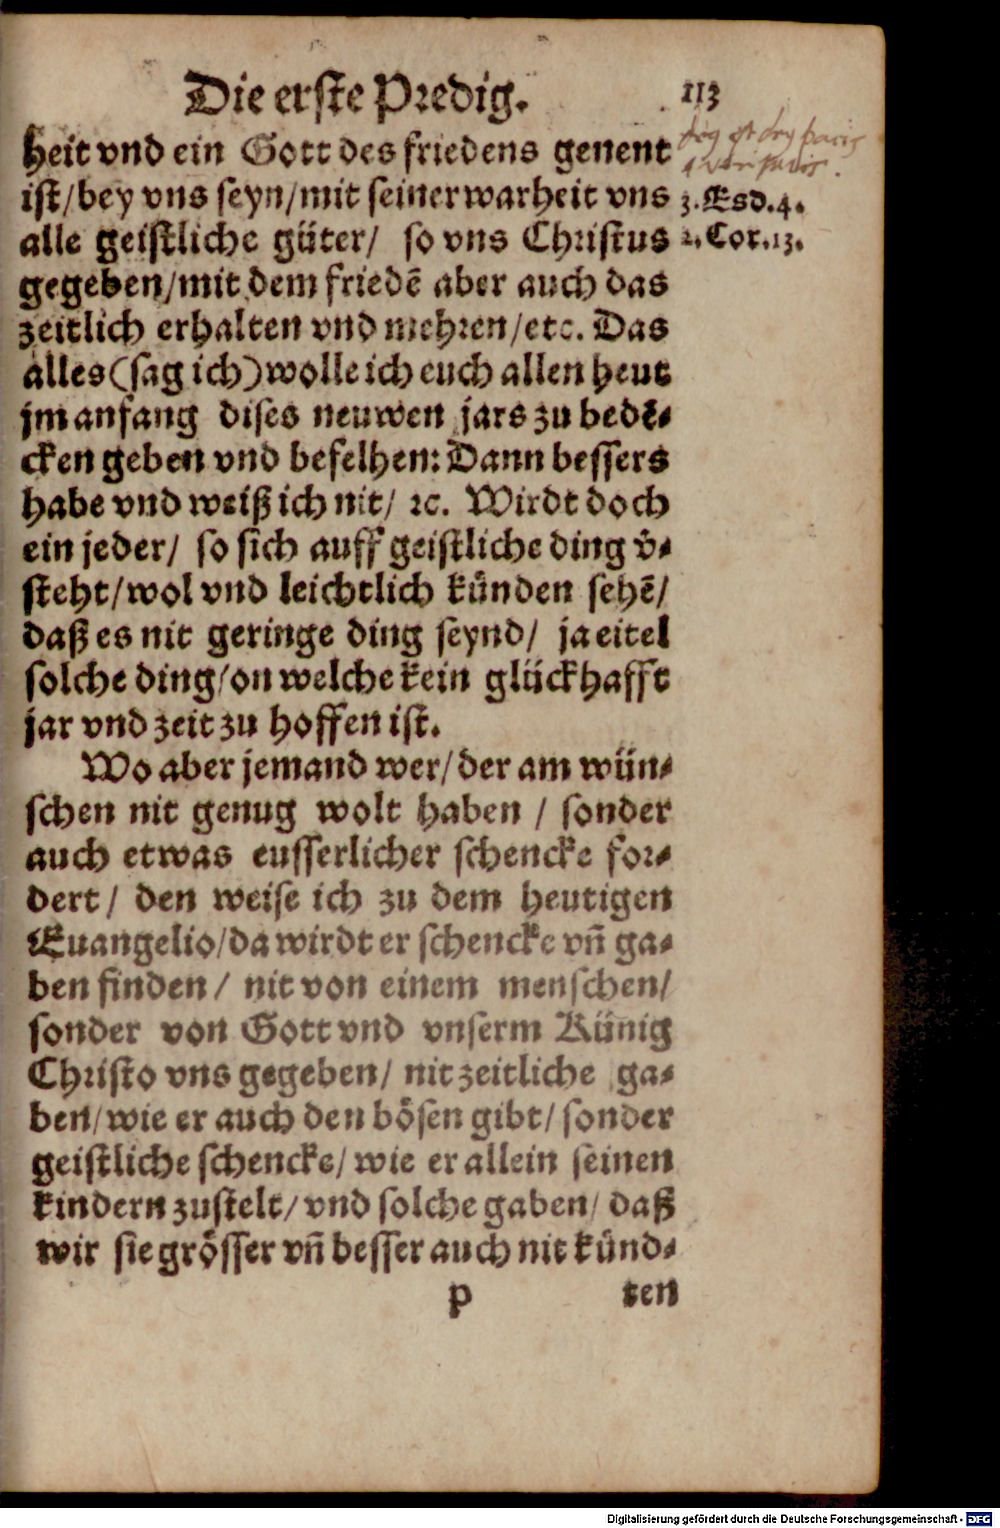 Die erste Predig. 113
heit vnd ein Gott des friedens genent
ist/bey vns seyn/mit seiner warheit vns 3. Esd. 4.
alle geistliche güter/ so vns Christus 2. Cor. 13.
gegeben/mit dem friedē aber auch das
zeitlich erhalten vnd mehren/etc. Das
alles (sag ich) wolle ich euch allen heut
jm anfang dises neuwen jars zu bedē-
cken geben vnd befelhen: Dann bessers
habe vnd weiß ich nit/ ꝛc. Wirdt doch
ein jeder/ so sich auff geistliche ding v̄-
steht/wol vnd leichtlich künden sehē/
daß es nit geringe ding seynd/ ja eitel
solche ding/on welche kein glückhafft
jar vnd zeit zu hoffen ist.
Wo aber jemand wer/der am wün-
schen nit genug wolt haben / sonder
auch etwas eusserlicher schencke for-
dert/ den weise ich zu dem heutigen
Euangelio/da wirdt er schencke vn̄ ga-
ben finden/ nit von einem menschen/
sonder von Gott vnd vnserm Künig
Christo vns gegeben/ nit zeitliche ga-
ben/wie er auch den bösen gibt/sonder
geistliche schencke/ wie er allein seinen
kindern zustelt/vnd solche gaben/ daß
wir sie grösser vn̄ besser auch nit künd-
p ten
Digitalisierung gefördert durch die Deutsche Forschungsgemeinschaft - DFG